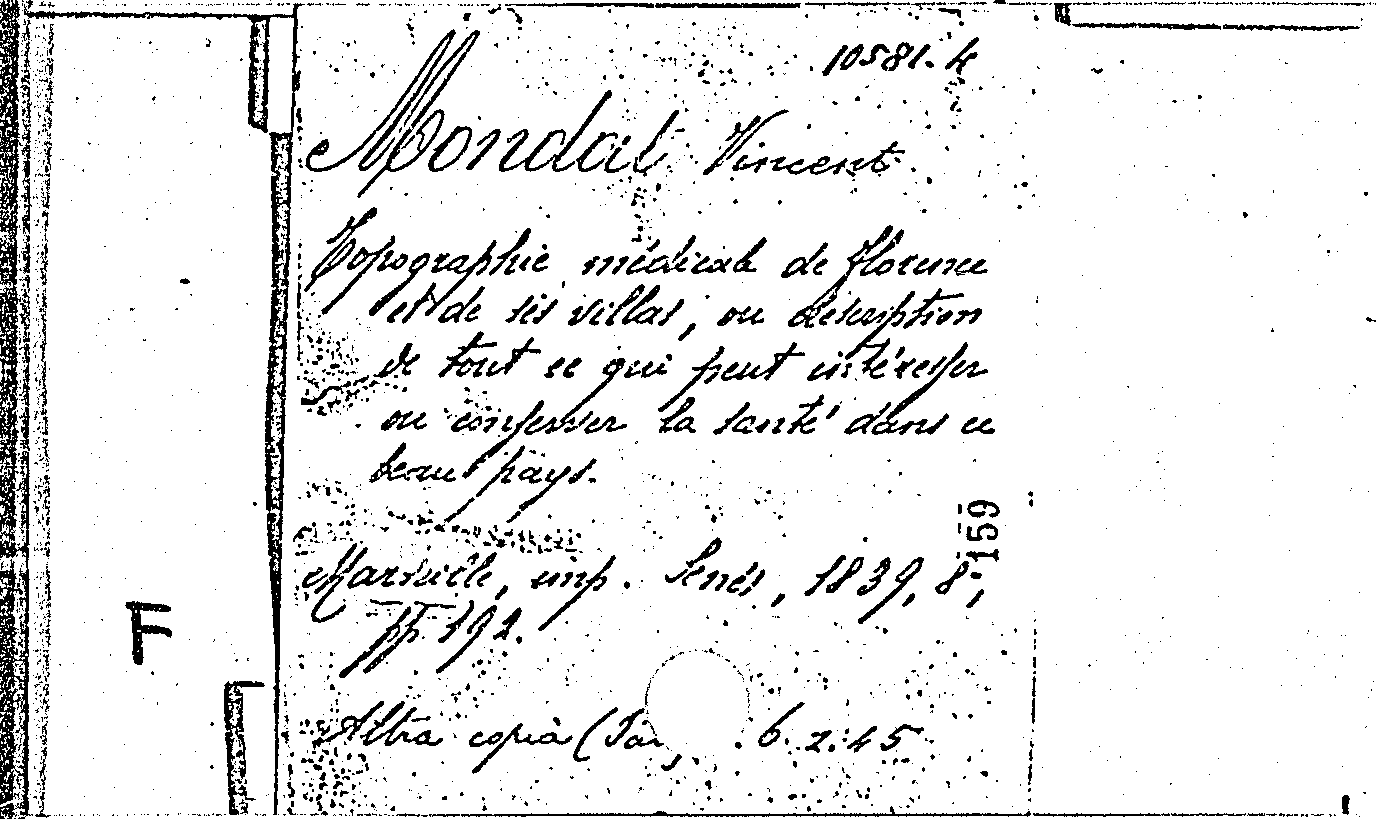 10581.4
Mondat Vincent
Topographie médicale de florence
et de ses villas, ou description
de tout ce qui peut intéresser
ou conserver la santé dans ce
beau pays.
159
Marseille, imp. Senés, 1839, 8-,
pp 192.
F
Altra copia ( . 6. 2. 45